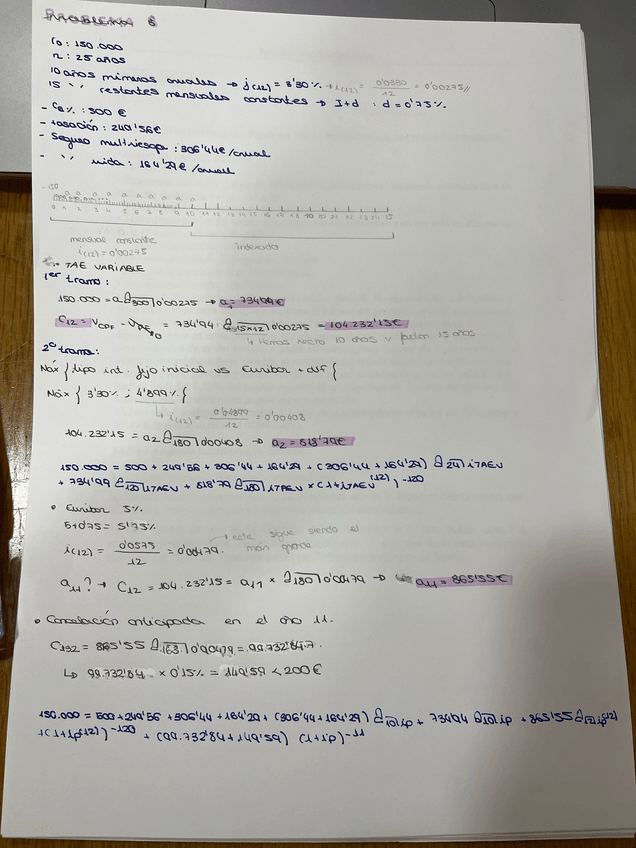 PROBLEMA 6
C0: 150.000
n: 25 años
10 años mimeros anuales → j(12) = 3'30% → i(12) = 0'0330/12 = 0'00275//
15 '' restantes mensuales constantes → I+d : d = 0'75%
- CB%: 500 €
- tasación: 249'56€
- Seguro multiriesgo: 306'44€/anual
- '' vida: 164'29€/anual
-150
a a a a a a a a a a
0 1 2 3 4 5 6 7 8 9 10 11 12 13 14 15 16 17 18 19 20 21 22 23 24 25
mensual constante
i(12) = 0'00275
indexado
TAE VARIABLE
1er tramo:
150.000 = a a300 0'00275 → a1 = 734'94€
C12 = VCPF - = 734'94 a15x12 0'00275 = 104.232'15€
↳ Hemos hecho 10 años y faltan 15 años
2º tramo:
Máx { tipo int. fijo inicial vs Euribor + dif {
Máx { 3'30% ; 4'899% {
↳ i(12) = 0'04899/12 = 0'00408
104.232'15 = a2 a180 0'00408 → a2 = 818'79€
150.000 = 500 + 249'56 + 306'44 + 164'29 + (306'44 + 164'29) a24 iTAEV
+ 734'94 a120 iTAEV + 818'79 a180 iTAEV x (1+iTAEV (12))-120
• Euribor 5%
5+0'75 = 5'75%
→ este sigue siendo el
más grande.
i(12) = 0'0575/12 = 0'00479
a11? → C12 = 104.232'15 = a11 x a180 0'00479 → a11 = 865'55€
• Cancelación anticipada en el año 11.
C132 = 865'55 a168 0'00479 = 99.732'847
↳ 99.732'84 x 0'15% = 149'59 < 200€
150.000 = 500 + 249'56 + 306'44 + 164'29 + (306'44 + 164'29) a10 ip + 734'94 a120 ip + 865'55 a12 ip(12)
x(1+ip(12))-120 + (99.732'84 + 149'59) (1+ip)-11